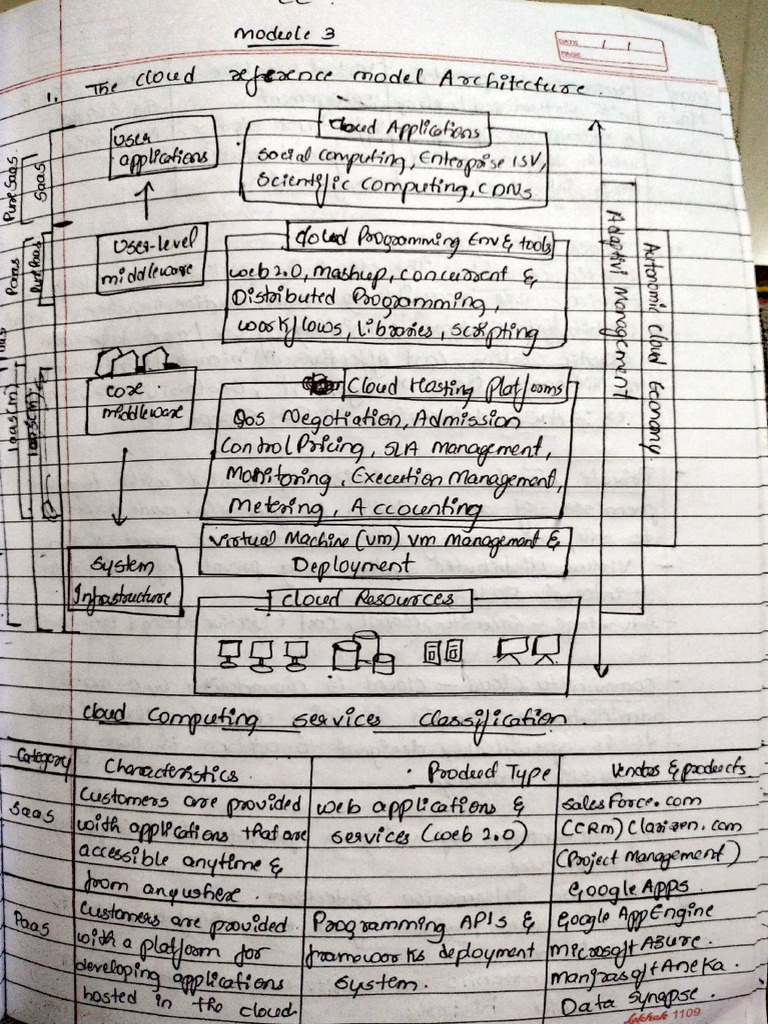 Module 3
DATE / /
PAGE
1. The cloud reference model Architecture.
User
applications
Cloud Applications
Social computing, Enterprise ISV,
Scientific computing, CDNs
User-level
middleware
Cloud Programming Env & tools
web 2.0, mashup, concurrent &
Distributed Programming,
workflows, libraries, scripting
core
middleware
Cloud Hosting Platforms
QoS Negotiation, Admission
Control Pricing, SLA management,
Monitoring, Execution Management,
Metering, Accounting
Virtual Machine (VM) VM Management &
Deployment
System
Infrastructure
Cloud Resources
Pure SaaS
SaaS
PaaS
Pure PaaS
IaaS(M)
Adaptive Management
Autonomic Cloud Economy
Cloud Computing services classification
Category Characteristics. Product Type Vendors & products
SaaS
Customers are provided
with applications that are
accessible anytime &
from anywhere.
web applications &
services (web 2.0)
SalesForce.com
(CRM) Clarizen.com
(Project Management)
Google Apps
PaaS
Customers are provided
with a platform for
developing applications
hosted in the cloud
Programming APIs &
frameworks deployment
system.
Google AppEngine
Microsoft Azure.
Manjrasoft Aneka.
Data Synapse.
1109